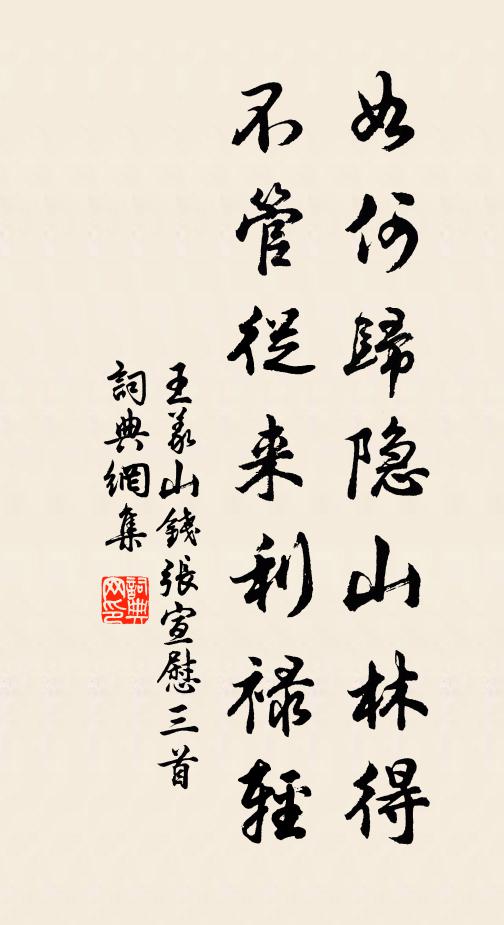 如何歸隐山林得
不管從来利禄輕
王義山錢張宣慰三首
詞典網集
詞典網印